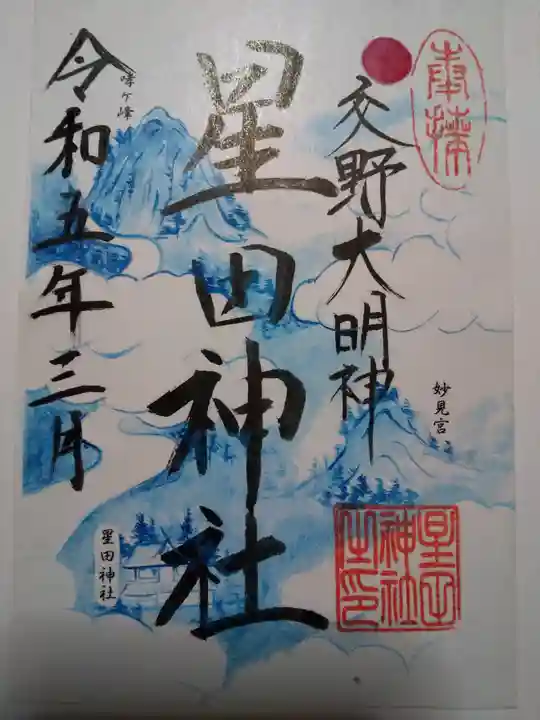 奉拝
交野大明神
妙見宮
星田神社之印
星田神社
令和五年三月
哮ヶ峰
星田神社